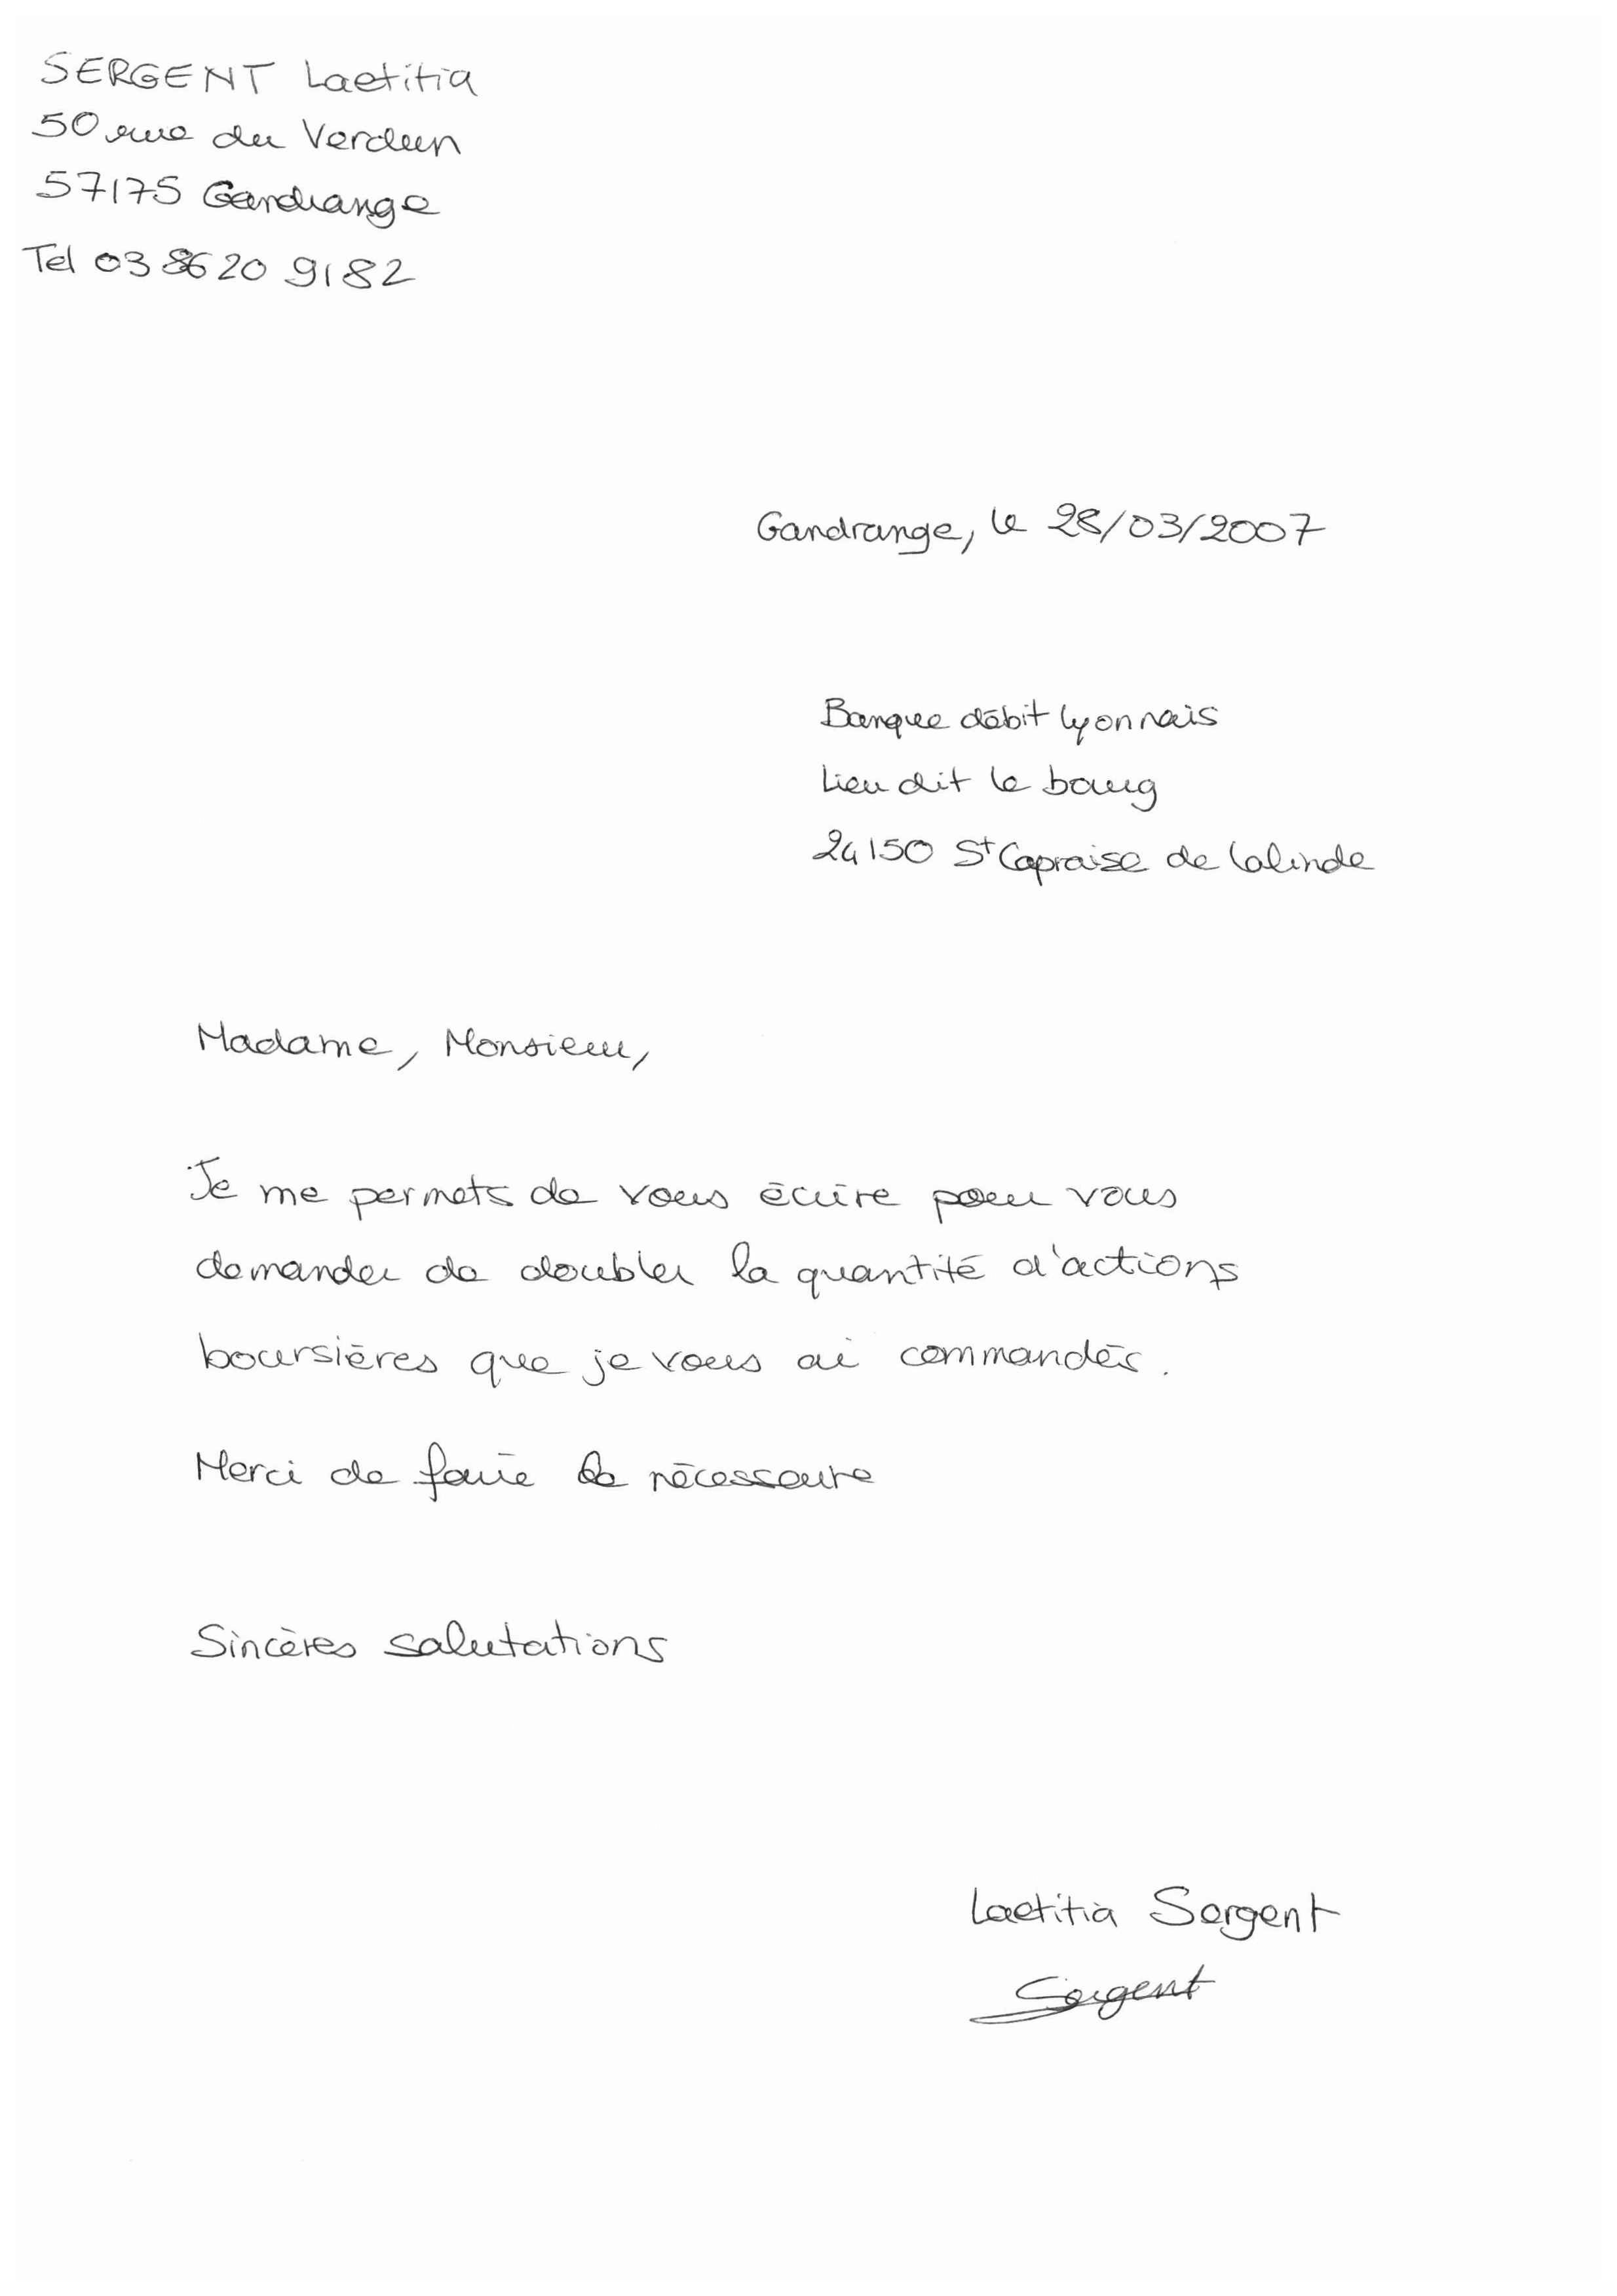 SERGENT Laetitia
50 rue du Verdun
57175 Gandrange
Tel 03 86 20 91 82
Gandrange, le 28/03/2007
Banque débit lyonnais
Lieu dit le bourg
24150 St Capraise de Lalinde
Madame, Monsieur,
Je me permets de vous écrire pour vous
demander de doubler la quantité d'actions
boursières que je vous ai commandés.
Merci de faire le nécessaire
Sincères salutations
Laetitia Sergent
Sergent